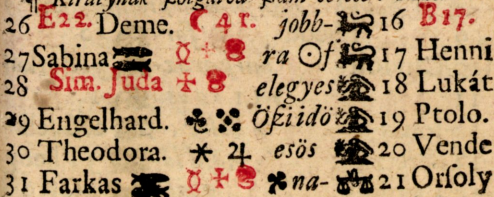 26 E22. Deme. ☾ 4 r. jobb- 16 B 17.
27 Sabina ra ☉ f 17 Henni
28 Sim. Juda elegyes 18 Lukát
29 Engelhard. Ösziidö 19 Ptolo.
30 Theodora. ⚹ ♃ esös 20 Vende
31 Farkas na- 21 Orſoly